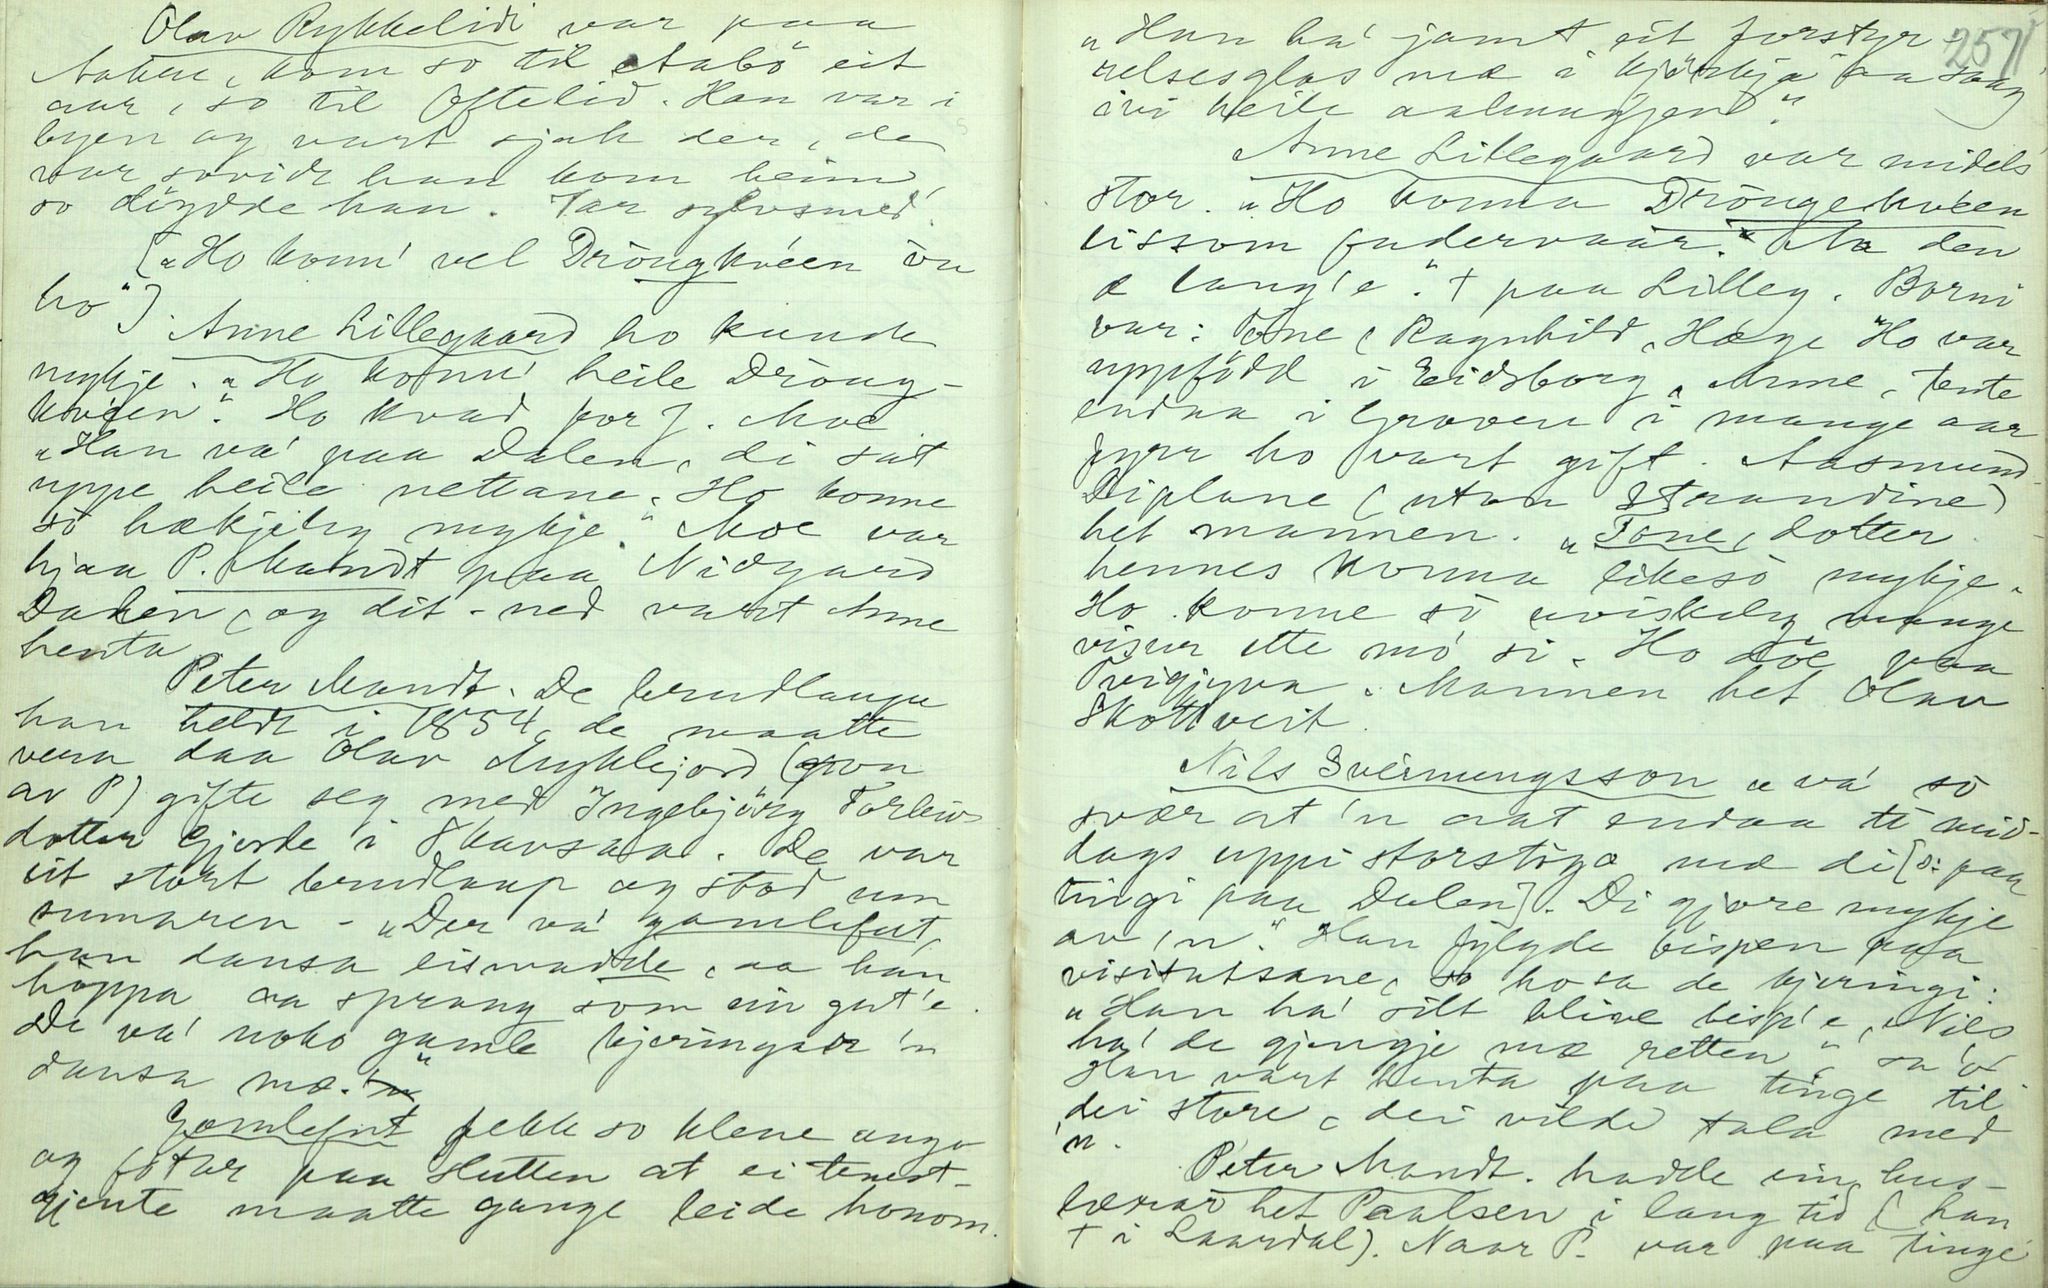 Olav Rykkelidi var paa
Aakre, kom so til Aabö eit
aar, so til Oftelid. Han var i
byen og vart sjuk der, de
var sovidt han kom heim,
so döydde han. Var sylvsmed.
["Ho konn' vel Dröngkvéen òu
ho"].
Anne Lillegaard ho kunde
mykje. "Ho konn' heile Dröng-
kvéen". Ho kvad for J. Moe
"Han va' paa Dalen, di sat
uppe heile nettane. Ho konne
so hækjeleg mykje". Moe var
hjaa P. Mandt paa Nidgard
Dalen, og dit-ned vart Anne
henta
Peter Mandt. De brudlaupe
han heldt i 1854, de maatte
vera daa Olav Myklejord (son
av P) gifte seg med Ingebjörg Torleivs
dotter Gjerde i Skavsaa. De var
eit stort brudlaup og stod um
sumaren - "Der va' gamlefut,
han dansa eismadde, aa han
hoppa aa sprang som ein gut'e.
De va' noko gamle kjeringar 'n
dansa mæ."
Gamlefut fekk so klene augo
og fötar paa slutten at ei tenest-
gjente maatte gange leide honom.
257
"Han ha' jamt eit forstyr-
relsesglas mæ i kjörkja aa saag
ivi heile aalmugjen".
Anne Lillegaard var midels
stor. "Ho konna Dröngekvéen
eissom fadervaar." "Aa den
æ lang'e." † paa Lilleg. Borni
var: Tone, Ragnhild, Hæge "Ho var
uppfödd i Eidsborg, Anne, tente
endaa i Groven i mange aar
fyrr ho vart gift. Aasmund
Diplane (utan Straandine)
het mannen. "Tone, dotter
hennes konna likesò mykje.
Ho konne sò uviskeleg mange
visur ette mó si. Ho döe paa
Trigjyva. Mannen het Olav
Skottveit.
Nils Sveinungsson "va' so
svær at 'n aat endaa te mid-
dags uppi storstoga mæ di [o: paa
tingi paa Dalen]. Di gjore mykje
av 'n." Han fylgde bispen paa
visitatsane, so hosa de kjeringi:
"Han ha' silt blive bisp'e, Nils,
ha' de gjengje mæ retten", sa' o
Han vart henta paa tinge til
dei store, dei vilde tala med
'n.
Peter Mandt. hadde ein hus-
lærar het Paulsen i lang tid (han
† i Laardal). Naar P. var paa tinge